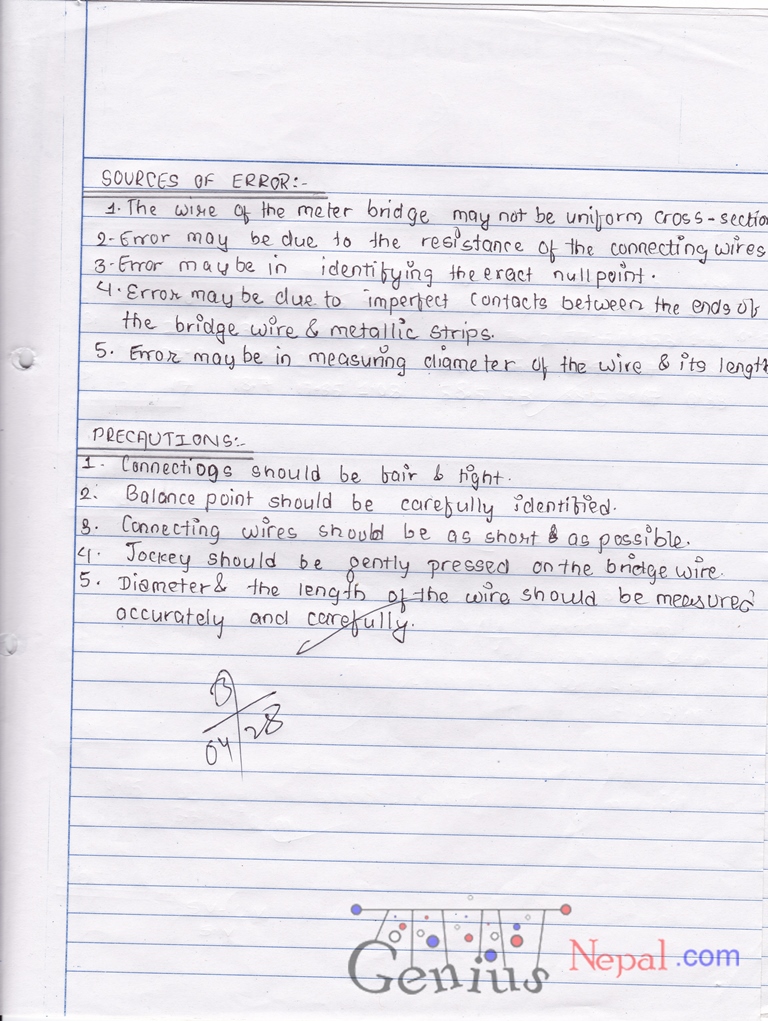 SOURCES OF ERROR:-
1. The wire of the meter bridge may not be uniform cross-section
2. Error may be due to the resistance of the connecting wires
3. Error may be in identifying the exact null point.
4. Error may be due to imperfect contacts between the ends of
the bridge wire & metallic strips.
5. Error may be in measuring diameter of the wire & its length
PRECAUTIONS:-
1. Connectiogs should be fair & tight.
2. Balance point should be carefully identified.
3. Connecting wires should be as short & as possible.
4. Jockey should be gently pressed on the bridge wire.
5. Diameter & the length of the wire should be measured
accurately and carefully.
04 28
Genius Nepal.com